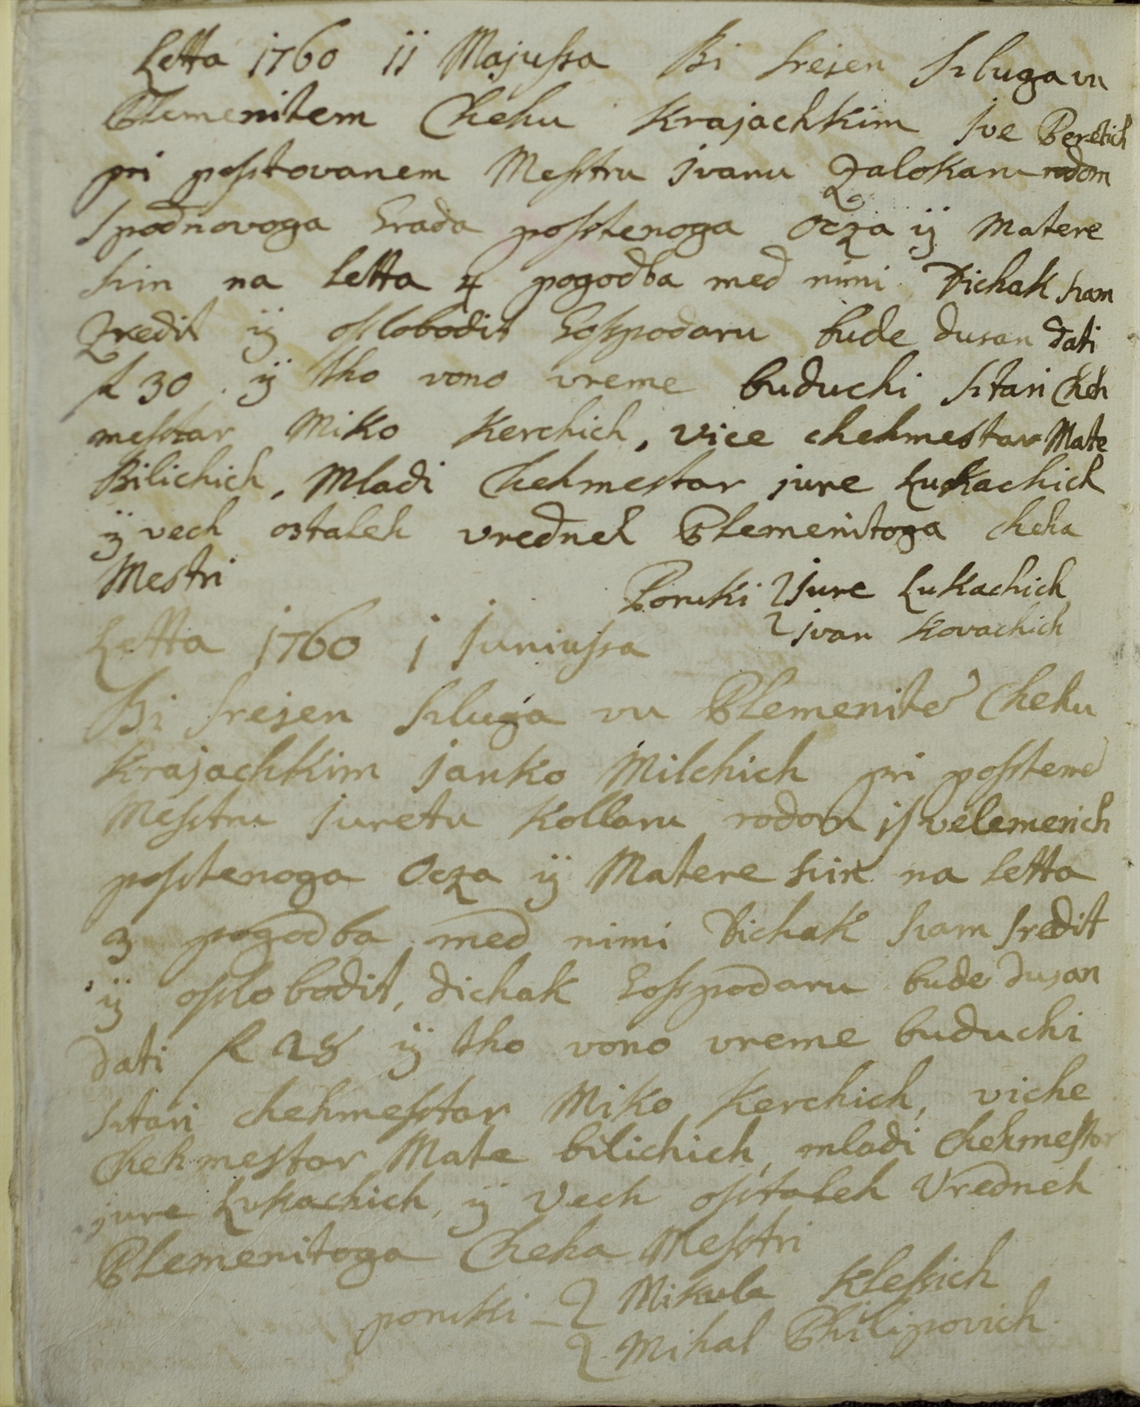 Letta 1760 11 Majussa Bi srejen szluga vu
Plemenitem Chehu Krajachkim Ive Peretich
pri postovanem Mestru Ivanu Zalokaru rodom
Spodnovoga Grada postenoga Ocza ÿ Matere
szin na Letta 4 pogodba med nimi Dichak szam
Zredit ÿ oslobodit Gospodaru bude dusan dati
f 30 ÿ tho vono vreme buduchi sztari Cheh
mestar Miko Kerchich, vice chehmestar Mate
Bilichich, Mladi Chehmestar jure Lukachich
ÿ vech ostaleh vredneh Plemenitoga cheha
Mestri
Poruki Jure Lukachich
Ivan Kovachich
Letta 1760 1 Juniussa
Bi srejen szluga vu Plemenite Chehu
Krajachkim Janko Milchich pri postene
Mestru Juretu Kollaru rodom is velemerich
postenoga Ocza ÿ Matere szin na Letta
3 pogodba med nimi Dichak szam sredit
ÿ oslobodit, dichak Gospodaru bude dusan
dati f 28 ÿ tho vono vreme buduchi
sztari chehmestar Miko Kerchich, viche
chehmestar Mate bilichich, mladi chehmestar
jure Lukachich, ÿ Vech ostaleh Vredneh
Plemenitoga Cheha Mestri
poruki Mikula Klesich
Mihal Philipovich